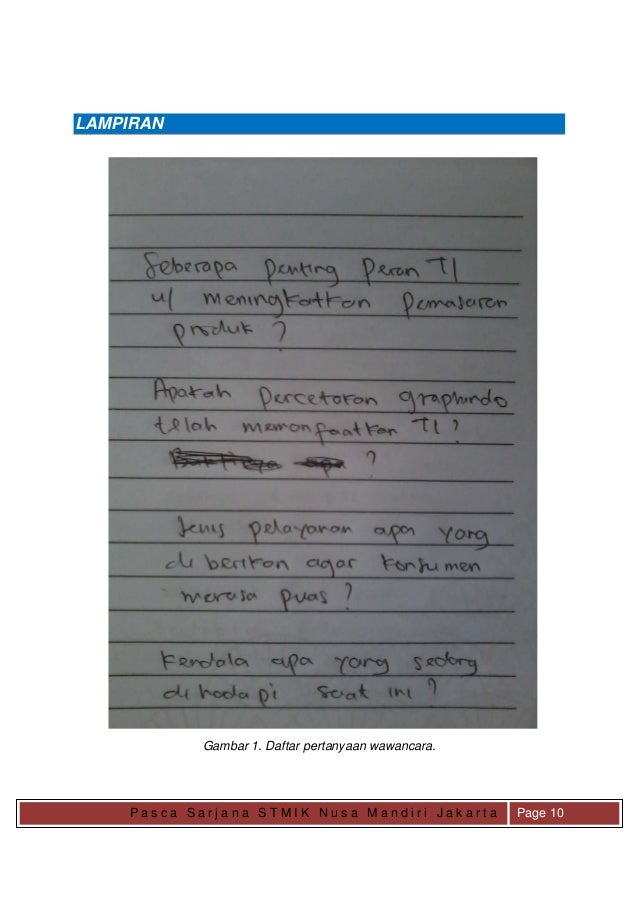 LAMPIRAN
Seberapa penting peran TI
u/ meningkatkan pemasaran
produk ?
Apakah percetakan graphindo
telah memanfaatkan TI ?
?
Jenis pelayanan apa yang
di berikan agar konsumen
merasa puas ?
Kendala apa yang sedang
di hadapi saat ini ?
Gambar 1. Daftar pertanyaan wawancara.
Pasca Sarjana STMIK Nusa Mandiri Jakarta Page 10